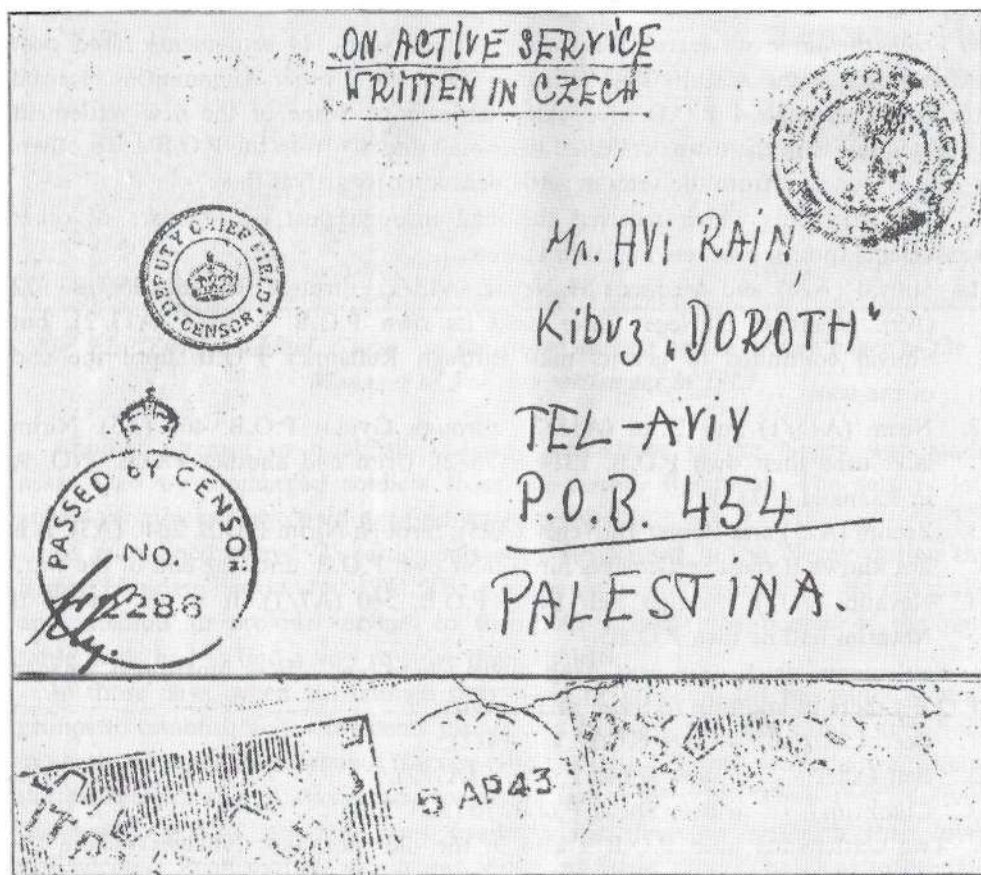 ON ACTIVE SERVICE
WRITTEN IN CZECH
DEPUTY CHIEF FIELD
CENSOR
Mr. AVI RAIN
Kibuz „DOROTH"
TEL-AVIV
P.O.B. 454
PALESTINA.
PASSED BY CENSOR
NO.
286
5 AP 43